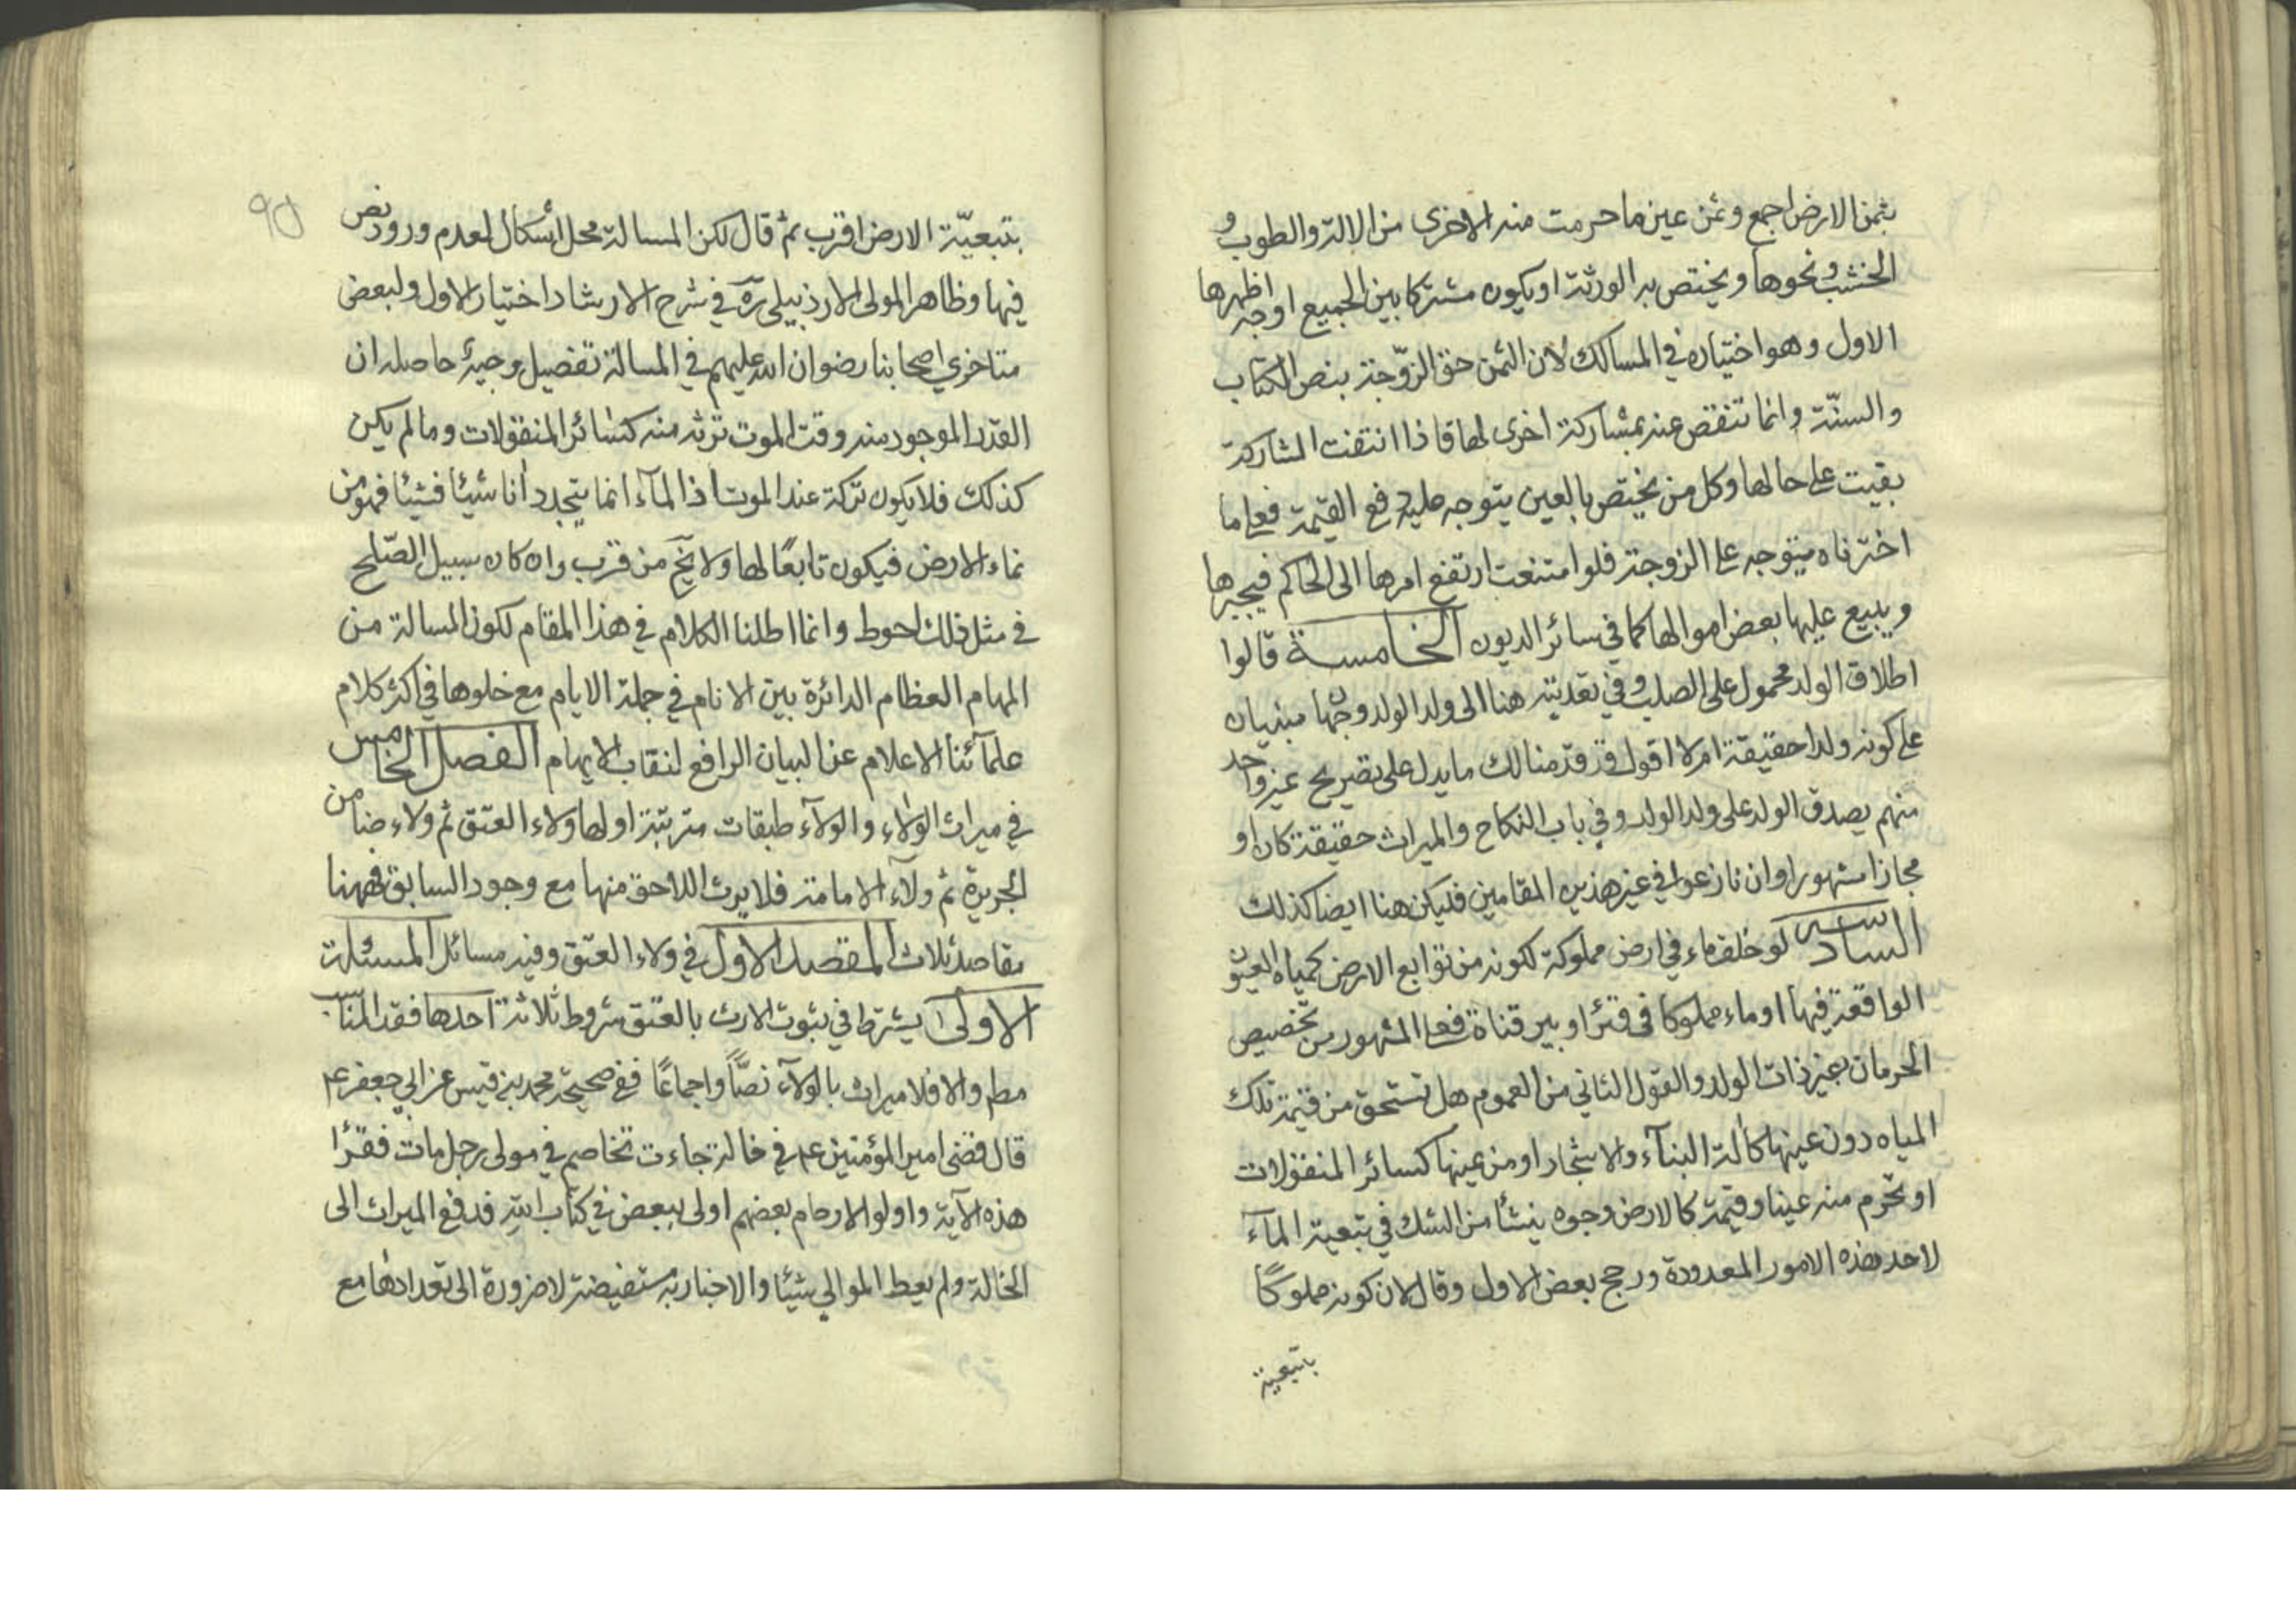 بثمن الارض اجمع وثمن عين ما حرمت منه الاخرى من الالة والطوب و
الخشب ونحوها ويختص به الورثة او يكون مشتركا بين الجميع اوجه اظهرها
الاول وهو اختياره في المسالك لان الثمن حق الزوّجة بنص الكتاب
والسنّة وانما تنقص عنه بمشاركة اخرى لها فاذا انتفت المشاركة
بقيت على حالها وكل من يختص بالعين يتوجه عليه دفع القيمة فعلى ما
اخترناه يتوجه على الزوجة فلو امتنعت ارتفع امرها الى الحاكم فيجبرها
ويبيع عليها بعض اموالها كما في سائر الديون الخامسة قالوا
اطلاق الولد محمول على الصلب وفي تعديته هنا الى ولد الولد وجها مبنيان
على كونه ولدا حقيقة ام لا اقول قد قدّمنا لك ما يدل على تصريح غير واحد
منهم يصدق الولد على ولد الولد وفي باب النكاح والميراث حقيقة كان او
مجازا مشهورا وان نازعوا في غير هذين المقامين فليكن هنا ايضا كذلك
السادسه لو خلف ماء في ارض مملوكة لكونه من توابع الارض كمياه العيون
الواقعة فيها او ماء مملوكا في او بير قناة فعلى المشهور من تخصيص
الحرمان بغير ذات الولد والقول الثاني من العموم هل تستحق من قيمة تلك
المياه دون عينها كالة البنآء والاشجار او من عينها كسائر المنقولات
او تحرم منه عينا وقيمة كالارض وجوه ينشأ من الشك في تبعية المآء
لاحد هذه الامور المعدودة ورجح بعض الاول وقال لان كونه مملوكًا
بتبعية
90
بتبعيّة الارض اقرب ثم قال لكن المسالة محل اشكال لعدم ورود نص
فيها وظاهر المولى الاردبيلى ره في شرح الارشاد اختيار الاول ولبعض
متاخري اصحابنا رضوان الله عليهم في المسالة تفصيل وجيه حاصله ان
القدر الموجود منه وقت الموت ترثه منه كسائر المنقولات وما لم يكن
كذلك فلا يكون تركة عند الموت اذ المآء انما يتجدد انا شيئا فشيئا فهو من
نماء الارض فيكون تابعًا لها ولا يخ من قرب وان كان سبيل الصّلح
في مثل ذلك احوط وانما اطلنا الكلام في هذا المقام لكون المسالة من
المهام العظام الدائرة بين الانام في جملة الايام مع خلوها في اكثر كلام
علمآئنا الاعلام عن البيان الرافع لنقاب الابهام الفصل الخامس
في ميراث الولاء والولآء طبقات مترتبة اولها ولاء العتق ثم ولاء ضامن
الجريرة ثم ولآء الامامة فلا يرث اللاحق منها مع وجود السابق فههنا
مقاصد ثلاث المقصد الاول في ولاء العتق وفيه مسائل المسئلة
الاولى يشترط في ثبوت الارث بالعتق شروط ثلاثة احدها فقد المناسب
مطلم والا فلا ميراث بالولآء نصًّا واجماعًا ففي صحيحة محمد بن قيس عن ابي جعفر ع
قال قضى امير المؤمنين ع في خالة جاءت تخاصم في مولى رجل مات فقرا
هذه الآية واولو الارحام بعضهم اولى ببعض في كتاب الله فدفع الميراث الى
الخالة ولم يعط الموالي شيئا والاخبار به مستفيضة لا ضرورة الى تعدادها مع